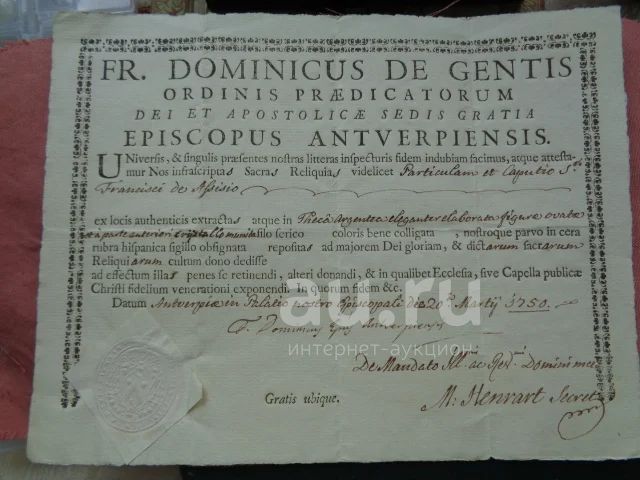 FR. DOMINICUS DE GENTIS
ORDINIS PRÆDICATORUM
DEI ET APOSTOLICÆ SEDIS GRATIA
EPISCOPUS ANTVERPIENSIS.
UNiversis, & singulis præsentes nostras litteras inspecturis fidem indubiam facimus, atque attesta-
mur Nos infrascriptas Sacras Reliquias videlicet Particulam et Caputio Sti
Francisci de Assisio
ex locis authenticis extractas atque in Thecâ Argenteâ eleganter elaborata figuræ ovatæ
et à parte anteriori crystallo munitâ filo serico coloris bene colligata, nostroque parvo in cera
rubra hispanica sigillo obsignata repositas ad majorem Dei gloriam, & dictarum sacrarum
Reliquiarum cultum dono dedisse
ad effectum illas penes se retinendi, alteri donandi, & in qualibet Ecclesia, sive Capella publicæ
Christi fidelium venerationi exponendi. In quorum fidem &c.
Datum Antverpiæ in Palatio nostro Episcopali die 20a Martij 1750.
F. Dominicus Epus Antverpiensis
au.ru
интернет-аукцион
De Mandato Illmi ac Revmi Domini mei
M: Henrart Secret
Gratis ubique.